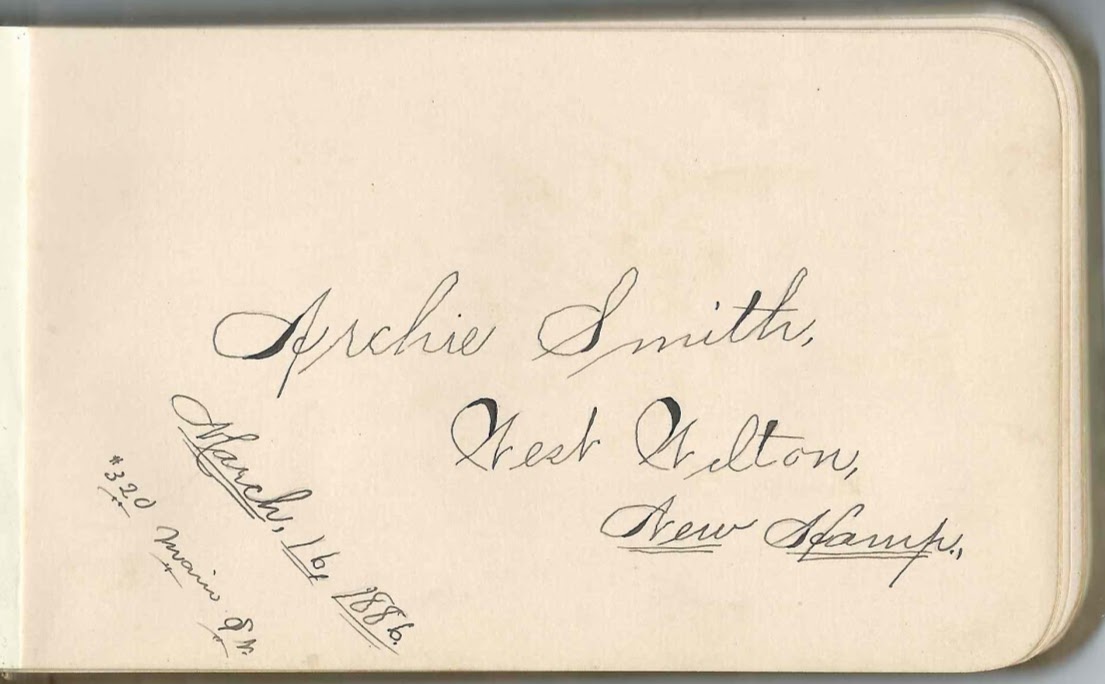 Archie Smith,
West Wilton,
New Hamp.,
March, 16, 1886.
#320 Main St.